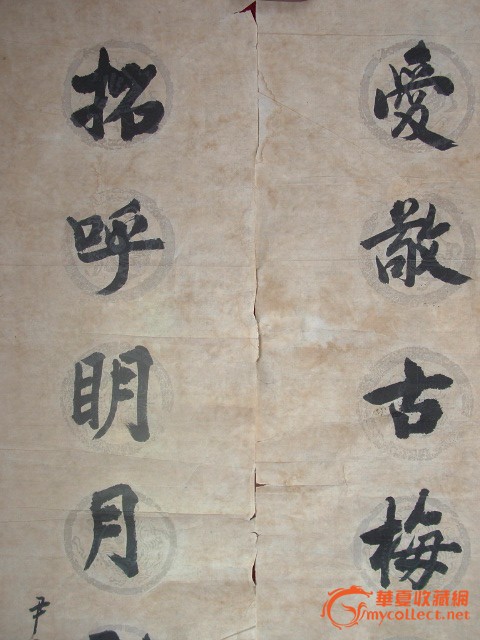 愛敬古梅
招呼明月
尹
華夏收藏網
mycollect.net